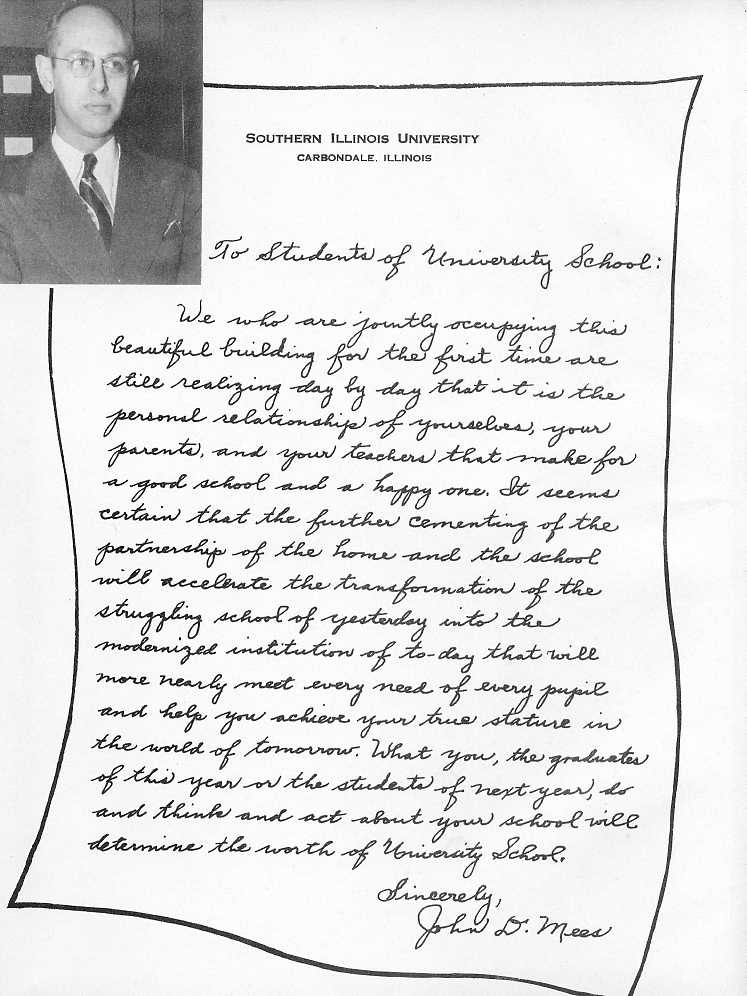 SOUTHERN ILLINOIS UNIVERSITY
CARBONDALE, ILLINOIS
To Students of University School:
We who are jointly occupying this
beautiful building for the first time are
still realizing day by day that it is the
personal relationship of yourselves, your
parents, and your teachers that make for
a good school and a happy one. It seems
certain that the further cementing of the
partnership of the home and the school
will accelerate the transformation of the
struggling school of yesterday into the
modernized institution of to-day that will
more nearly meet every need of every pupil
and help you achieve your true stature in
the world of tomorrow. What you, the graduates
of this year or the students of next year, do
and think and act about your school will
determine the worth of University School.
Sincerely,
John D. Mees